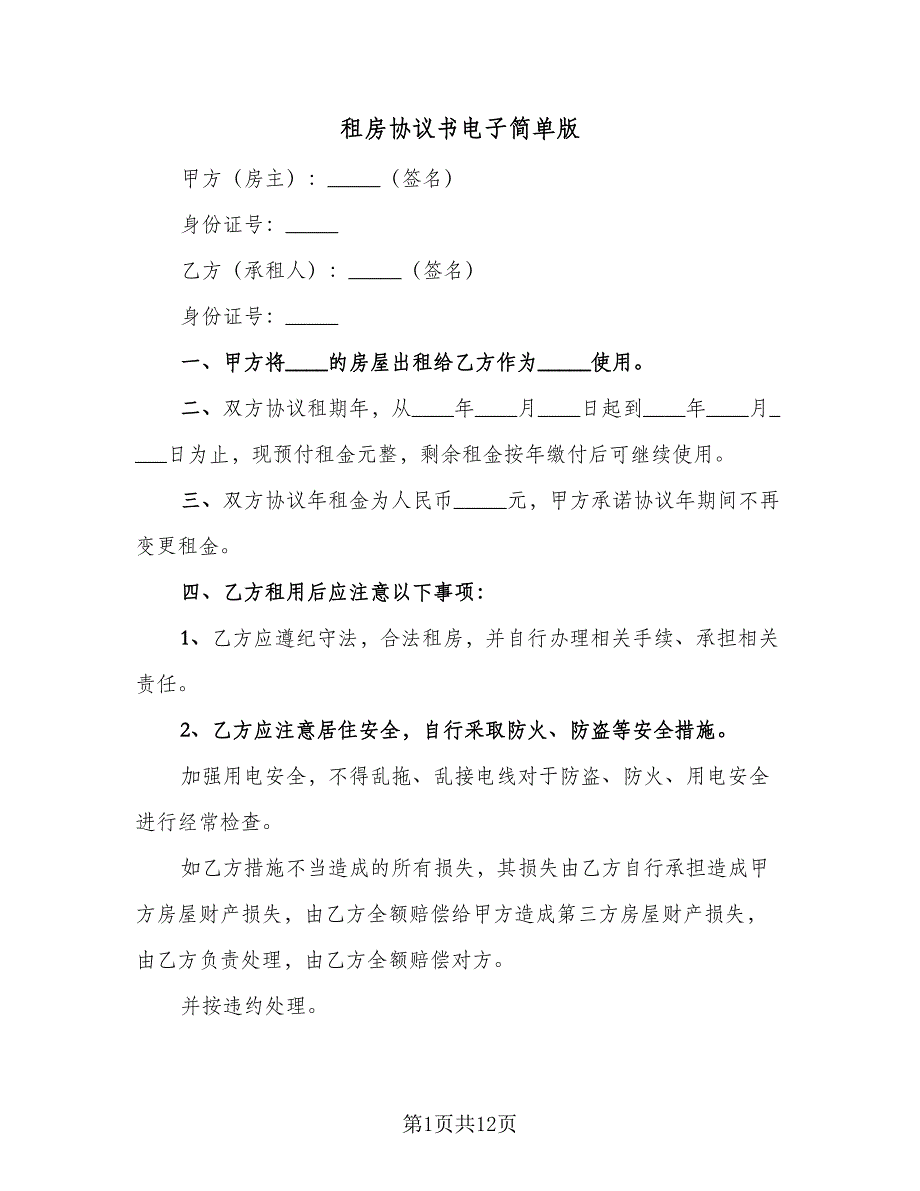 租房协议书电子简单版
甲方（房主）：_____（签名）
身份证号：_____
乙方（承租人）：_____（签名）
身份证号：_____
一、甲方将____的房屋出租给乙方作为_____使用。
二、双方协议租期年，从____年____月____日起到____年____月_
___日为止，现预付租金元整，剩余租金按年缴付后可继续使用。
三、双方协议年租金为人民币_____元，甲方承诺协议年期间不再
变更租金。
四、乙方租用后应注意以下事项：
1、乙方应遵纪守法，合法租房，并自行办理相关手续、承担相关
责任。
2、乙方应注意居住安全，自行采取防火、防盗等安全措施。
加强用电安全，不得乱拖、乱接电线对于防盗、防火、用电安全
进行经常检查。
如乙方措施不当造成的所有损失，其损失由乙方自行承担造成甲
方房屋财产损失，由乙方全额赔偿给甲方造成第三方房屋财产损失，
由乙方负责处理，由乙方全额赔偿对方。
并按违约处理。
第1页共12页